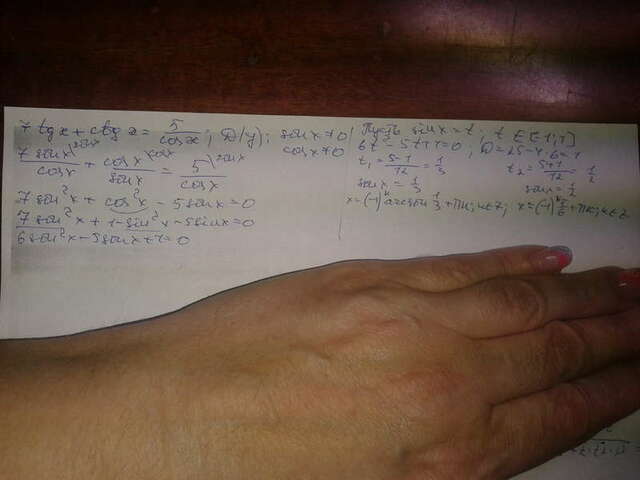 7 tgx + ctgx = 5/cosx; D(y); sinx≠0; cosx≠0
7 sinx\sinx / cosx + cosx\cosx / sinx = 5\sinx / cosx
7sin²x + cos²x - 5sinx = 0
7sin²x + 1-sin²x - 5sinx = 0
6sin²x - 5sinx + 1 = 0
Пусть sinx = t. t ∈ [-1;1]
6t² - 5t + 1 = 0; D = 25 - 4·6 = 1
t₁ = 5-1/12 = 1/3 t₂ = 5+1/12 = 1/2
sinx = 1/3 sinx = 1/2
x = (-1)ᵏ arcsin 1/3 + πк; к∈z; x = (-1)ᵏ π/6 + πк; к∈z.